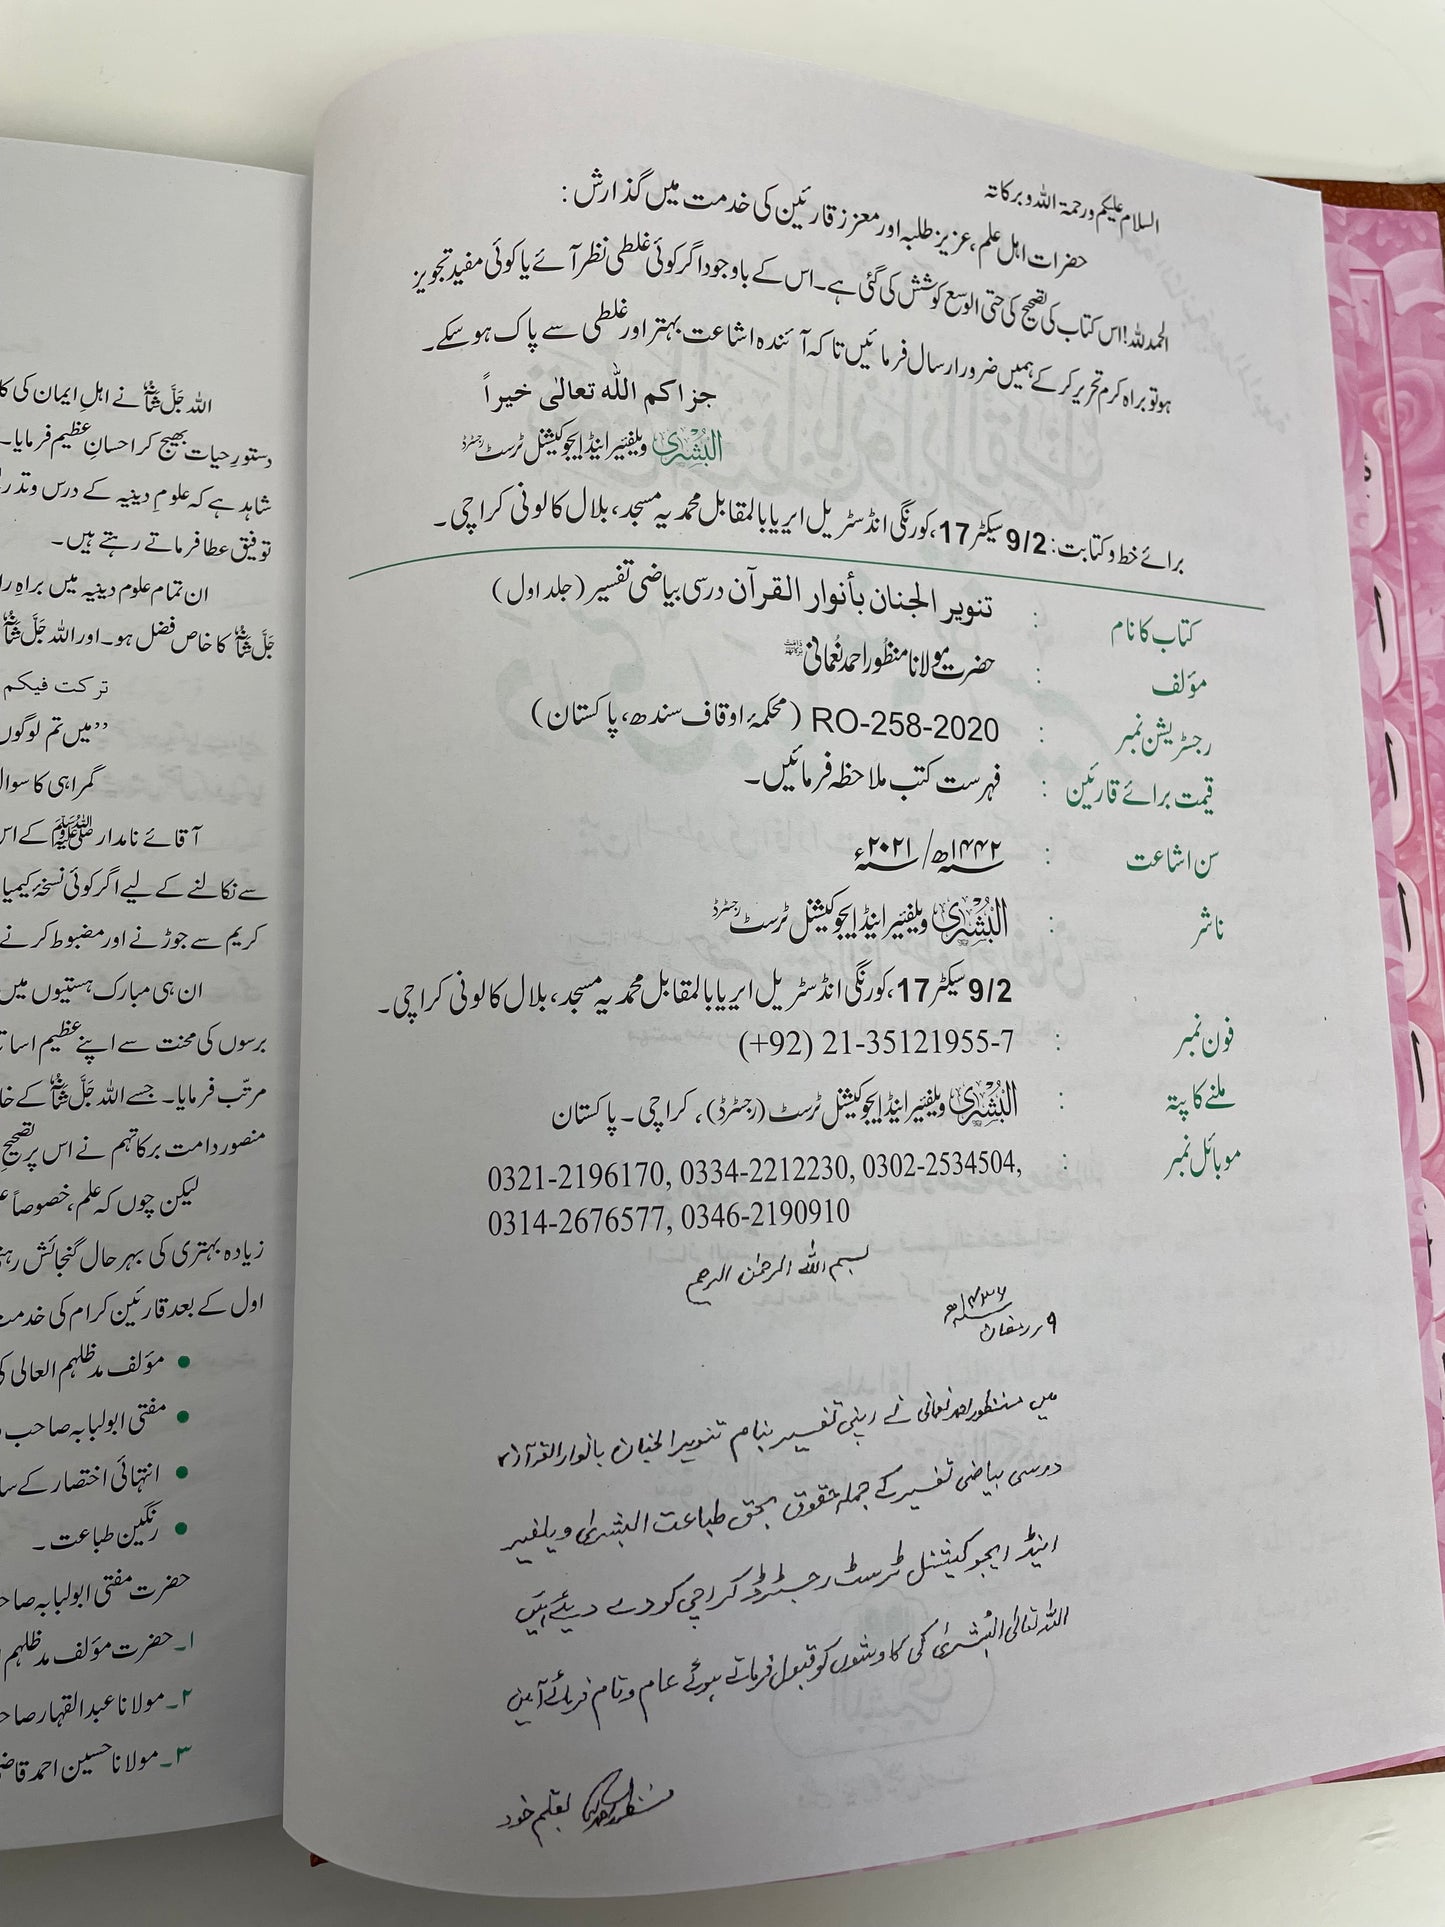 السلام علیکم ورحمۃ اللہ وبرکاتہ
حضرات اہل علم، عزیز طلبہ اور معزز قارئین کی خدمت میں گذارش:
الحمدللہ! اس کتاب کی تصحیح کی حتی الوسع کوشش کی گئی ہے۔ اس کے باوجود اگر کوئی غلطی نظر آئے یا کوئی مفید تجویز
ہو تو براہ کرم تحریر کرکے ہمیں ضرور ارسال فرمائیں تاکہ آئندہ اشاعت بہتر اور غلطی سے پاک ہوسکے۔
جزاکم اللہ تعالی خیراً
البُشریٰ ویلفیئر اینڈ ایجوکیشنل ٹرسٹ رجسٹرڈ
برائے خط وکتابت: 9/2 سیکٹر 17، کورنگی انڈسٹریل ایریا بالمقابل محمدیہ مسجد، بلال کالونی کراچی۔
کتاب کا نام : تنویر الجنان بأنوار القرآن درسی بیاضی تفسیر (جلد اول)
مؤلف : حضرت مولانا منظور احمد نعمانی دامت برکاتہم
رجسٹریشن نمبر : RO-258-2020 (محکمۂ اوقاف سندھ، پاکستان)
قیمت برائے قارئین : فہرست کتب ملاحظہ فرمائیں۔
سن اشاعت : ۱۴۴۲ھ/ ۲۰۲۱ء
ناشر : البُشریٰ ویلفیئر اینڈ ایجوکیشنل ٹرسٹ رجسٹرڈ
9/2 سیکٹر 17، کورنگی انڈسٹریل ایریا بالمقابل محمدیہ مسجد، بلال کالونی کراچی۔
فون نمبر : (+92) 21-35121955-7
ملنے کا پتہ : البُشریٰ ویلفیئر اینڈ ایجوکیشنل ٹرسٹ (رجسٹرڈ)، کراچی۔ پاکستان
موبائل نمبر : 0321-2196170, 0334-2212230, 0302-2534504,
0314-2676577, 0346-2190910
بسم اللہ الرحمٰن الرحیم
۹ رمضان ۱۴۳۶ھ
میں منظور احمد نعمانی نے اپنی تفسیر بنام تنویر الجنان بانوار القرآن
درسی بیاضی تفسیر کے جملہ حقوق بحق طباعت البشریٰ ویلفیر
اینڈ ایجوکیشنل ٹرسٹ رجسٹرڈ کراچی کو دے دیئے ہیں
اللہ تعالیٰ البُشریٰ کی کاوشوں کو قبول فرماتے ہوئے عام وتام فرمائے آمین
منظور احمد نعمانی بقلم خود
اللہ جَلَّ شَانُہٗ نے اہلِ ایمان کی
دستورِ حیات بھیج کر احسانِ عظیم فرمایا۔
شاہد ہے کہ علومِ دینیہ کے درس وتدر
توفیق عطا فرماتے رہتے ہیں۔
ان تمام علوم دینیہ میں براہِ را
جَلَّ شَانُہٗ کا خاص فضل ہو۔ اور اللہ جَلَّ شَانُہٗ
ترکت فیکم
’’میں تم لوگوں
گمراہی کا سوال
آقائے نامدار ﷺ کے اس
سے نکالنے کے لیے اگر کوئی نسخۂ کیمیا
کریم سے جوڑنے اور مضبوط کرنے
ان ہی مبارک ہستیوں میں
برسوں کی محنت سے اپنے عظیم اسات
مرتّب فرمایا۔ جسے اللہ جَلَّ شَانُہٗ کے خا
منصور دامت برکاتہم نے اس پر تصحیح
لیکن چوں کہ علم، خصوصاً
زیادہ بہتری کی بہرحال گنجائش رہت
اول کے بعد قارئین کرام کی خدمت
• مؤلف مدظلہم العالی کی
• مفتی ابولبابہ صاحب
• انتہائی اختصار کے سا
• رنگین طباعت۔
حضرت مفتی ابولبابہ صاح
۱۔ حضرت مؤلف مدظلہم
۲۔ مولانا عبدالقہار صاح
۳۔ مولانا حسین احمد قاض